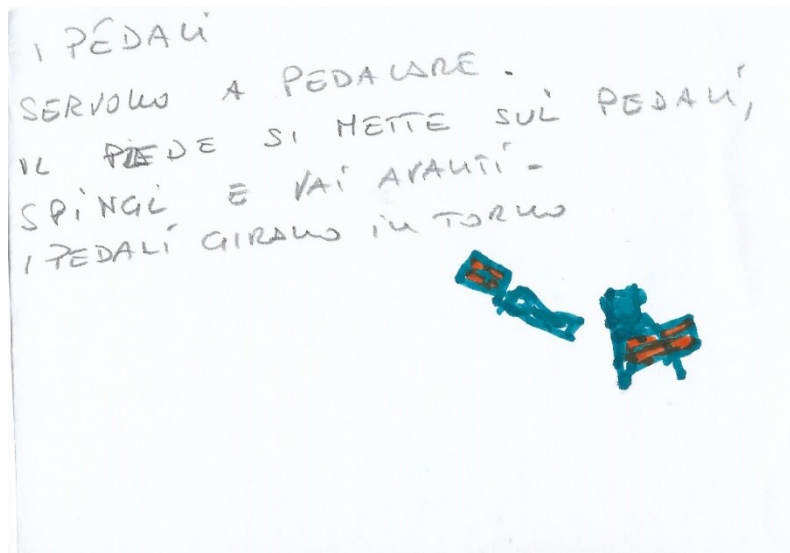 I PEDALI
SERVONO A PEDALARE.
IL PIEDE SI METTE SUI PEDALI,
SPINGI E VAI AVANTI-
I PEDALI GIRANO IN TORNO